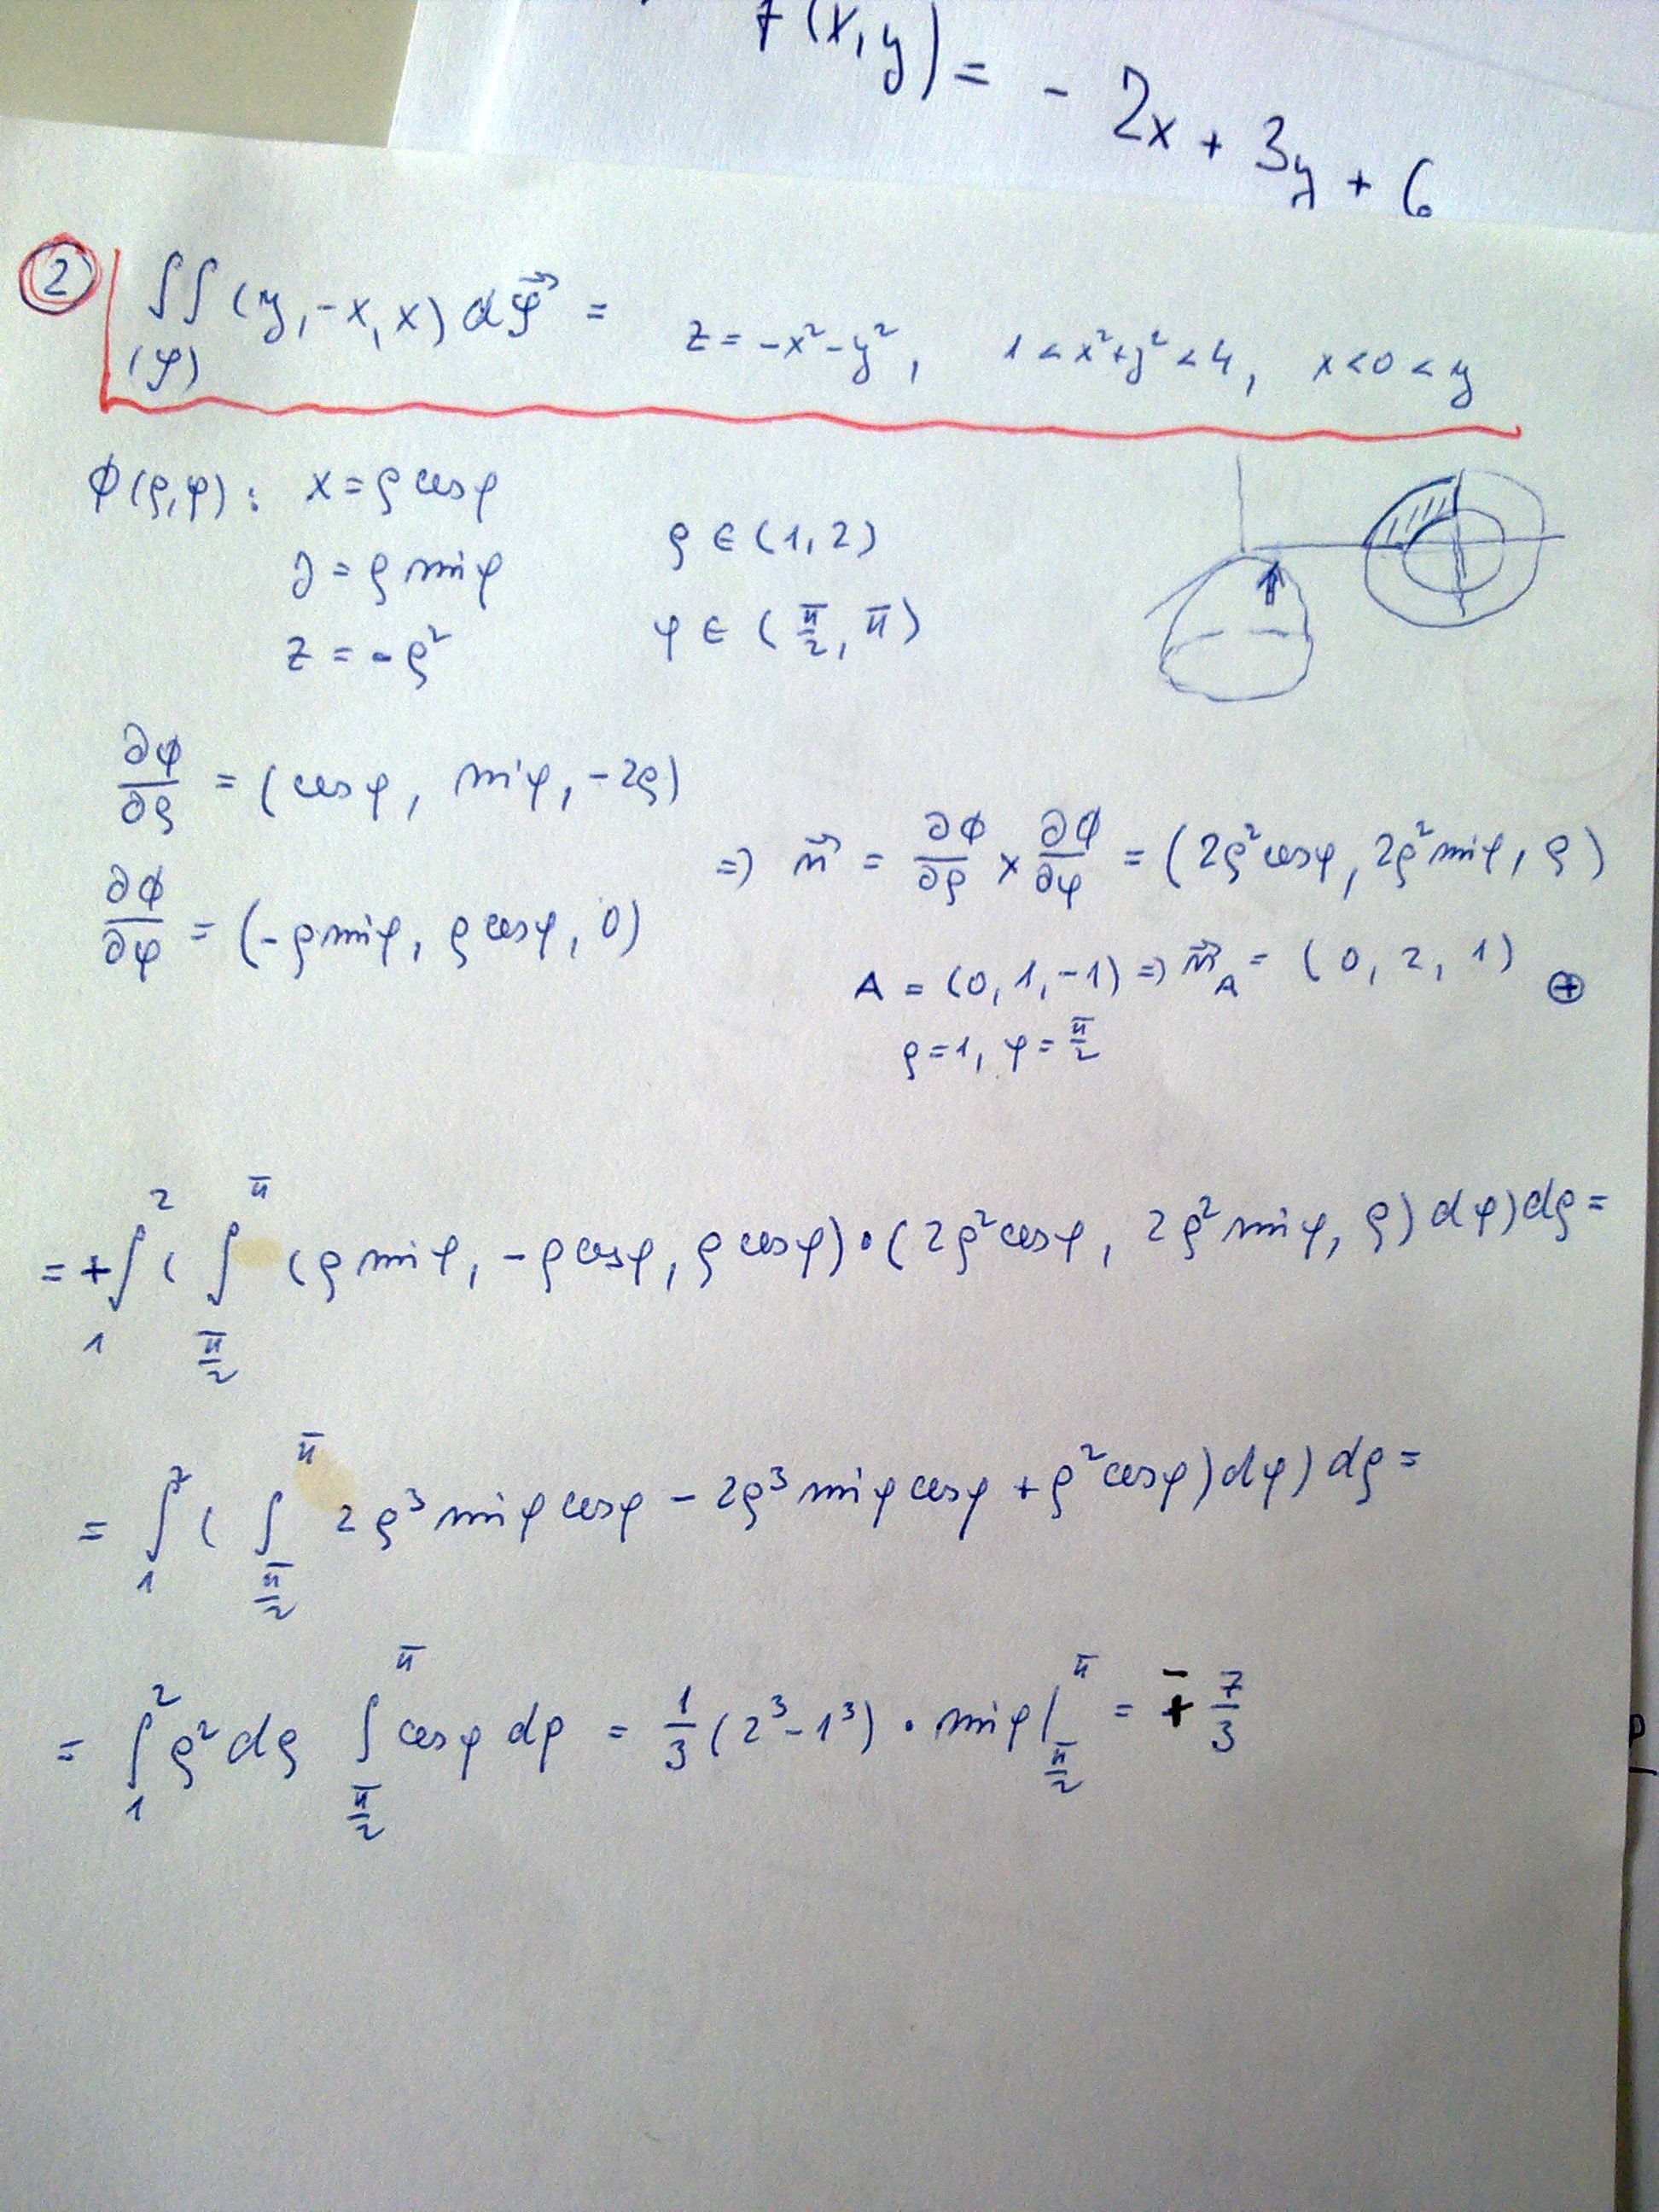 f(x,y) = - 2x + 3y + 6
② ∬(𝒮) (y, -x, x) d𝒮⃗ = z = -x² - y², 1 < x² + y² < 4, x < 0 < y
ϕ(ρ,φ): x = ρ cosφ
y = ρ sinφ ρ ∈ (1, 2)
z = -ρ² φ ∈ (π/2, π)
∂ϕ/∂ρ = (cosφ, sinφ, -2ρ)
⇒ n⃗ = ∂ϕ/∂ρ × ∂ϕ/∂φ = (2ρ²cosφ, 2ρ²sinφ, ρ)
∂ϕ/∂φ = (-ρ sinφ, ρ cosφ, 0)
A = (0, 1, -1) ⇒ n⃗_A = (0, 2, 1) ⊕
ρ = 1, φ = π/2
= + ∫₁² ( ∫_{π/2}^{π} (ρ sinφ, -ρ cosφ, ρ cosφ) • (2ρ²cosφ, 2ρ²sinφ, ρ) dφ) dρ =
= ∫₁² ( ∫_{π/2}^{π} 2ρ³ sinφ cosφ - 2ρ³ sinφ cosφ + ρ² cosφ) dφ) dρ =
= ∫₁² ρ² dρ ∫_{π/2}^{π} cosφ dφ = 1/3 (2³ - 1³) • sinφ |_{π/2}^{π} = ∓ 7/3